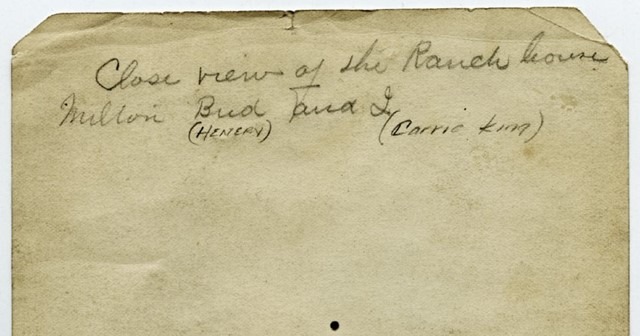 Close view of the Ranch house
Milton Bud and I
(HENERY) (Carrie King)